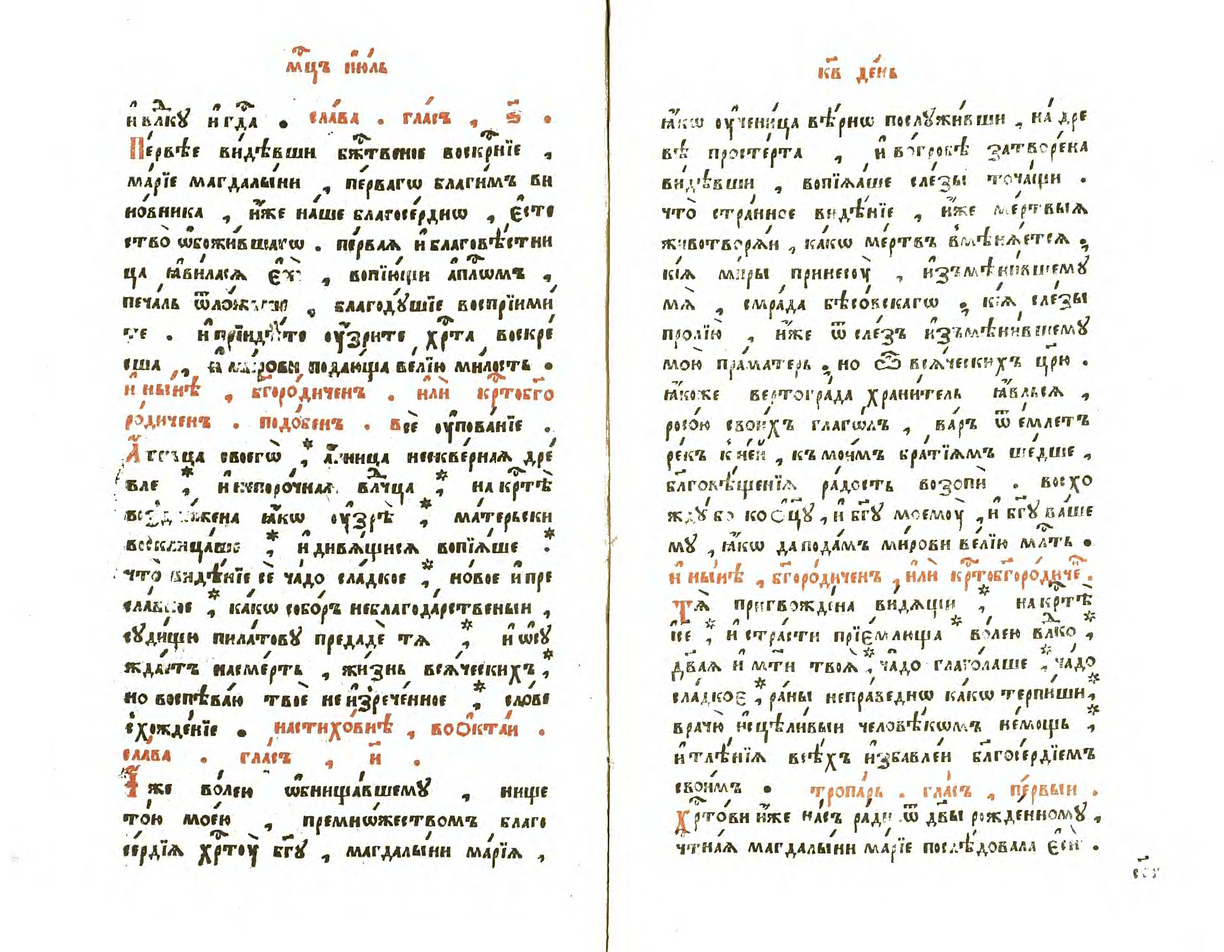 мⷭ҇цъ і҆ю́ль
и҆ вл҃кꙋ и҆ гдⷭ҇а . сла́ва . гла́съ , ѕ҃ .
Пе́рвѣе ви́дѣвши бжⷭ҇твеное воскрⷭ҇нїе ,
мⷶ҇рїе магдалы́ни , пе́рвагѡ благи́мъ ви
но́вника , и҆́же на́ше благосе́рдїѡ , є҆сте
ство̀ ѡ҆божи́вшагѡ . пе́рвая и҆ благовѣ́стни
ца ꙗ҆ви́лася , вопїю́щи а҆пⷭ҇лѡмъ ,
печа́ль , благодꙋ́шїе воспрїими
те . и҆ прїиди́те оу҆́зрите хрⷭ҇та̀ воскре́
сша , и҆ ми́рови подаю́ща ве́лїю ми́лость .
и҆ ны́нѣ , бг҃оро́диченъ . и҆лѝ крⷭ҇тобг҃о
ро́диченъ . подо́бенъ . всѐ оу҆пова́нїе .
А҆́гньца своегѡ̀ * а҆́гница нескве́рная дре́
вле * и҆ непоро́чная влⷣчца * на крⷭ҇тѣ̀
воздви́жена ꙗ҆́кѡ оу҆зрѣ̀ * ма́терьски
восклица́ше * и҆ дивя́щися вопїя́ше *
что̀ видѣ́нїе сѐ ча́до сла́дкое * но́вое и҆ пре
сла́вное * ка́кѡ собо́ръ неблагода́рственыи ,
сꙋди́щю пила́товꙋ предаде́ тя * и҆ ѡ҆сꙋ
жда́етъ на сме́рть , жи́знь вся́ческихъ *
но воспѣва́ю твоѐ неизрече́нное * сло́ве
схожде́нїе . на стихо́внѣ , во ѻ҆кта́и .
сла́ва . гла́съ , и҃ .
И҆́же во́лею ѡ҆бнища́вшемꙋ , нище
то́ю мое́ю , премно́жествомъ благо
се́рдїя хрⷭ҇тоу бг҃ꙋ , магдалы́ни мⷶ҇рїя ,
к҃в де́нь
ꙗ҆́кѡ оу҆чени́ца вѣ́рнѡ послꙋжи́вши , на дре́
вѣ просте́рта , и҆ во гро́бѣ затворе́на
ви́дѣвши , вопїя́ше сле́зы точа́щи .
что̀ стра́нное видѣ́нїе , и҆́же ме́ртвыя
животворя́и , ка́кѡ ме́ртвъ вмѣня́ется ;
кі́я ми́ры принесꙋ̀ , и҆змѣни́вшемꙋ
мя̀ , смра́да бѣсо́вскагѡ ; кі́я сле́зы
пролїю̀ , и҆́же ѿ сле́зъ и҆змѣни́вшемꙋ
мою̀ прама́терь . но ѽ вся́ческихъ црю̀ .
ꙗ҆́коже вертогра́да храни́тель ꙗ҆́влься ,
росо́ю свои́хъ глаго́лъ , ва́ръ ѿе́млетъ
ре́къ к не́и , къ мои́мъ бра́тїямъ ше́дше ,
благовѣще́нїя ра́дость возопѝ . восхо
ждꙋ́ бо ко ѻ҆ц҃ꙋ , и҆ бг҃ꙋ моемꙋ̀ , и҆ бг҃ꙋ ва́ше
мꙋ , ꙗ҆́кѡ да пода́мъ ми́рови ве́лїю млⷭ҇ть .
и҆ ны́нѣ , бг҃оро́диченъ , и҆лѝ крⷭ҇тобг҃оро́диче .
Тя̀ пригвожде́на ви́дящи * на крⷭ҇тѣ̀
і҆с҃е * и҆ стра́сти прїе́млюща * во́лею вл҃ко ,
дв҃ая и҆ мт҃и твоя̀ * ча́до глаго́лаше * ча́до
сла́дкоє * ра́ны непра́веднѡ ка́кѡ терпи́ши *
врачю̀ и҆сцѣли́выи человѣ́кѡмъ не́мощь *
и҆ тлѣ́нїя всѣ́хъ и҆зба́влеи благосе́рдїемъ
свои́мъ . тропа́рь . гла́съ , пе́рвыи .
Хрⷭ҇то́ви и҆́же на́съ ра́ди ѿ дв҃ы рожде́нномꙋ ,
чтⷭ҇ная магдалы́ни мⷶ҇рїе послѣ́довала є҆сѝ .